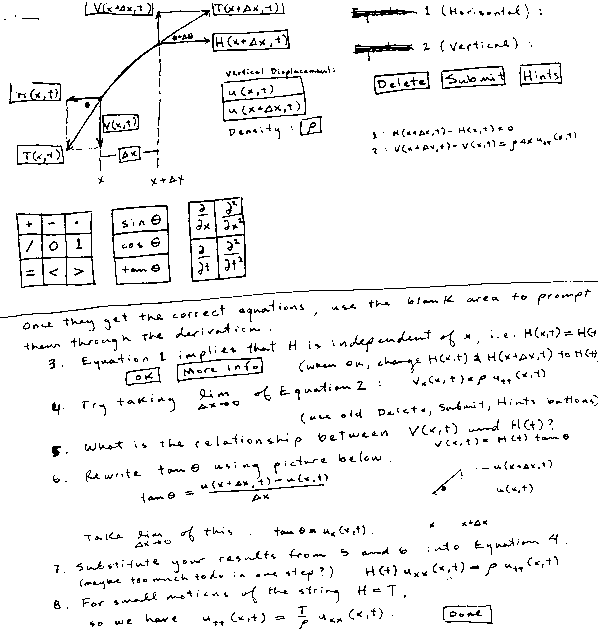 V(x+Δx,t)
T(x+Δx,t)
θ+Δθ
H(x+Δx,t)
H(x,t)
θ
V(x,t)
T(x,t)
Δx
x
x+Δx
Vertical Displacement:
u(x,t)
u(x+Δx,t)
Density: ρ
1 (Horizontal):
2 (Vertical):
Delete Submit Hints
1: H(x+Δx,t) - H(x,t) = 0
2: V(x+Δx,t) - V(x,t) = ρ Δx u_tt(x,t)
+ - ·
/ 0 1
= < >
sin θ
cos θ
tan θ
∂/∂x ∂²/∂x²
∂/∂t ∂²/∂t²
Once they get the correct equations, use the blank area to prompt
them through the derivation.
3. Equation 1 implies that H is independent of x, i.e. H(x,t) = H(t)
OK More info (when OK, change H(x,t) & H(x+Δx,t) to H(t)
4. Try taking lim Δx→0 of Equation 2: V_x(x,t) = ρ u_tt(x,t)
(use old Delete, Submit, Hints buttons)
5. What is the relationship between V(x,t) and H(t)?
V(x,t) = H(t) tan θ
6. Rewrite tan θ using picture below.
tan θ = u(x+Δx,t) - u(x,t) / Δx
u(x+Δx,t)
θ
u(x,t)
x x+Δx
Take lim Δx→0 of this. tan θ = u_x(x,t).
7. Substitute your results from 5 and 6 into Equation 4.
(maybe too much to do in one step?) H(t) u_xx(x,t) = ρ u_tt(x,t)
8. For small motions of the string H = T,
so we have u_tt(x,t) = T/ρ u_xx(x,t). Done